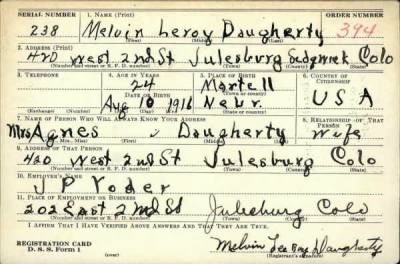 SERIAL NUMBER 1. NAME (Print) ORDER NUMBER
238 Melvin Leroy Daugherty 394
(First) (Middle) (Last)
2. ADDRESS (Print)
420 West 2nd St Julesburg Sedgwick Colo
(Number and street or R. F. D. number) (Town) (County) (State)
3. TELEPHONE 4. AGE IN YEARS 5. PLACE OF BIRTH 6. COUNTRY OF CITIZENSHIP
24
DATE OF BIRTH
Aug 10 1916 Nebr. USA
(Exchange) (Number) (Mo.) (Day) (Yr.) (State or country)
7. NAME OF PERSON WHO WILL ALWAYS KNOW YOUR ADDRESS 8. RELATIONSHIP OF THAT PERSON
Mrs Agnes Daugherty Wife
(Mr., Mrs., Miss) (First) (Middle) (Last)
9. ADDRESS OF THAT PERSON
420 West 2nd St Julesburg Colo
(Number and street or R. F. D. number) (Town) (County) (State)
10. EMPLOYER'S NAME
J P Yoder
11. PLACE OF EMPLOYMENT OR BUSINESS
202 East 2nd St Julesburg Colo
(Number and street or R. F. D. number) (Town) (County) (State)
I AFFIRM THAT I HAVE VERIFIED ABOVE ANSWERS AND THAT THEY ARE TRUE.
REGISTRATION CARD
D. S. S. Form 1 (over) Melvin Leroy Daugherty
(Registrant's signature)